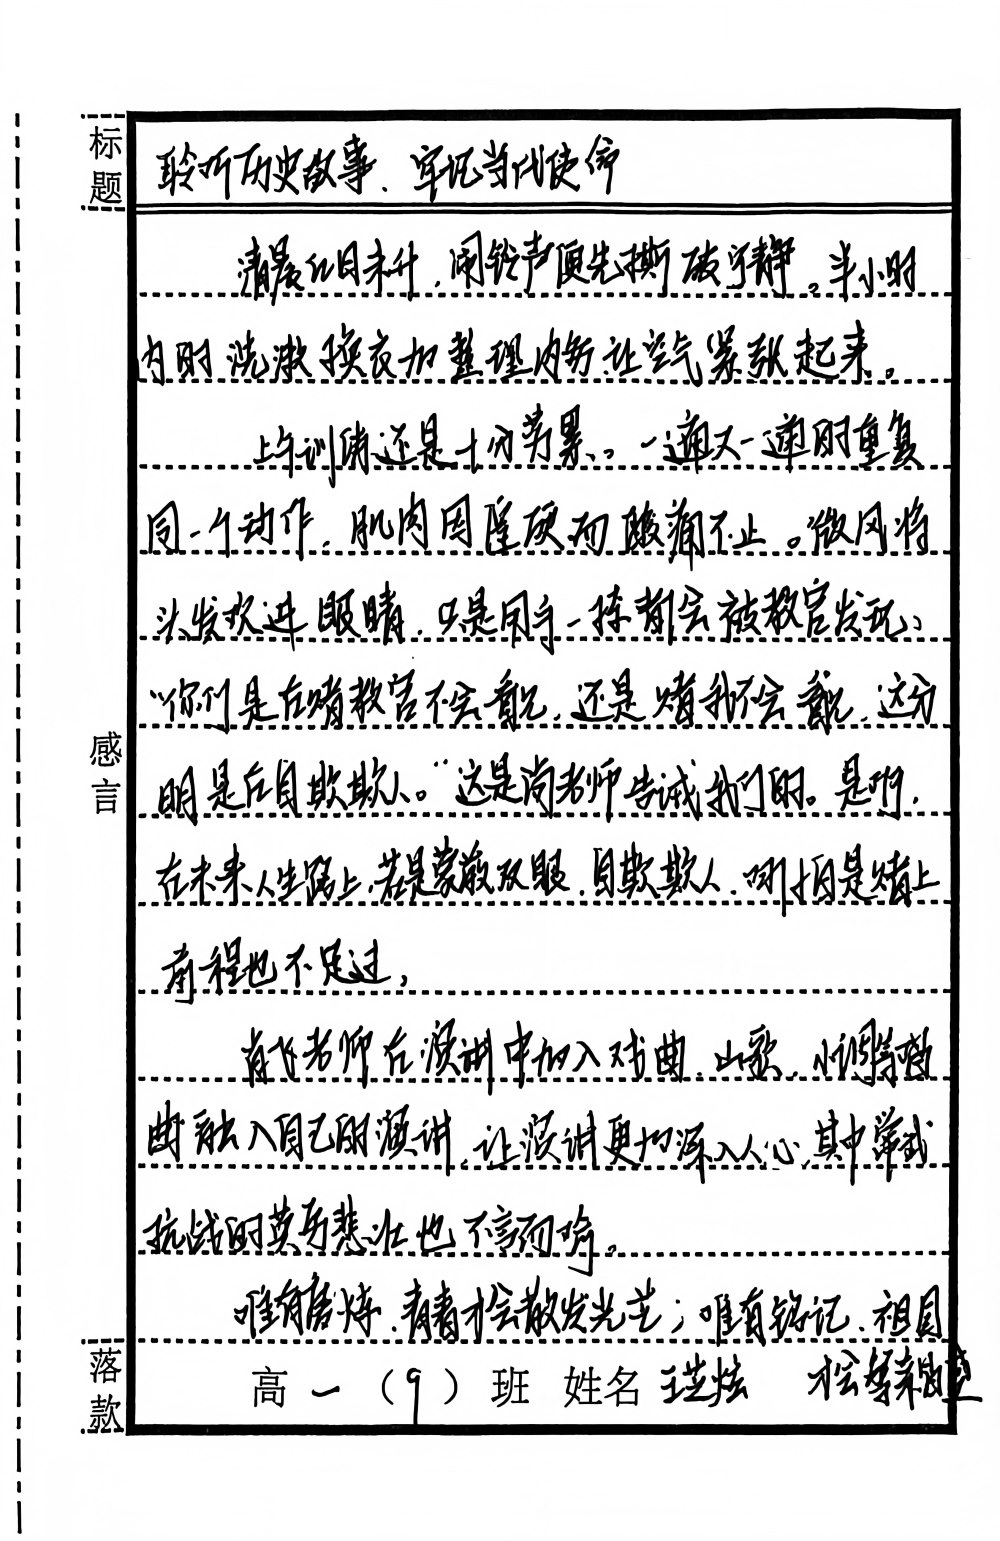 标题
聆听历史故事、牢记当代使命
清晨红日未升，闹铃声便先撕破宁静。半小时
内的洗漱换衣加整理内务让空气紧张起来。
上午训练还是十分劳累。一遍又一遍的重复
同一个动作，肌肉因僵硬而酸痛不止。微风将
头发吹进眼睛，只是用手一抹都会被教官发现：
“你们是在赌教官不会看见，还是赌我不会看见，这分
明是在自欺欺人。”这是尚老师告诫我们的。是啊，
在未来人生路上，若是蒙蔽双眼，自欺欺人，哪怕是赌上
前程也不足过，
肖飞老师在演讲中加入戏曲、山歌、小调等
曲融入自己的演讲，让演讲更加深入人心，其中
抗战的英勇悲壮也不言而喻。
唯有磨炼，青春才会散发光芒；唯有铭记、祖国
才会繁荣
感言
落款
高一（9）班 姓名 王芝炫